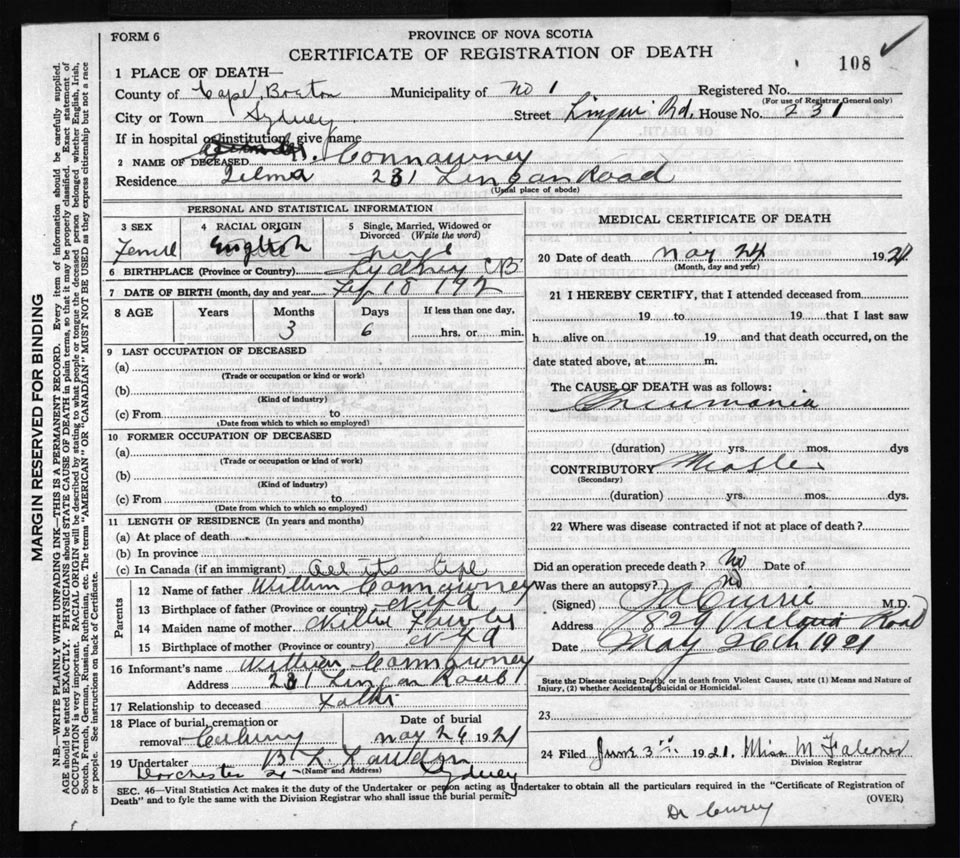 FORM 6
PROVINCE OF NOVA SCOTIA
CERTIFICATE OF REGISTRATION OF DEATH
108
1 PLACE OF DEATH—
County of Cape Breton Municipality of No 1 Registered No.
(For use of Registrar General only)
City or Town Sydney Street Lingan Rd. House No. 231
If in hospital or institution, give name
2 NAME OF DECEASED Connawney
Residence Zelma 231 Lingan Road
(Usual place of abode)
PERSONAL AND STATISTICAL INFORMATION
3 SEX
Female
4 RACIAL ORIGIN
English
5 Single, Married, Widowed or Divorced (Write the word)
6 BIRTHPLACE (Province or Country) Sydney CB
7 DATE OF BIRTH (month, day and year) Feb 18 192
8 AGE Years Months Days If less than one day,
3 6 hrs. or min.
9 LAST OCCUPATION OF DECEASED
(a)
(Trade or occupation or kind or work)
(b)
(Kind of industry)
(c) From to
(Date from which to which so employed)
10 FORMER OCCUPATION OF DECEASED
(a)
(Trade or occupation or kind of work)
(b)
(Kind of industry)
(c) From to
(Date from which to which so employed)
11 LENGTH OF RESIDENCE (In years and months)
(a) At place of death
(b) In province
(c) In Canada (if an immigrant) all its life
Parents
12 Name of father William Connawney
13 Birthplace of father (Province or country) Nfld
14 Maiden name of mother Nellie
15 Birthplace of mother (Province or country) Nfld
16 Informant's name William Connawney
Address 231 Lingan Road
17 Relationship to deceased Father
18 Place of burial, cremation or removal
Date of burial
May 26 1921
19 Undertaker
(Name and Address)
Dorchester St Sydney
MEDICAL CERTIFICATE OF DEATH
20 Date of death May 24 1921
(Month, day and year)
21 I HEREBY CERTIFY, that I attended deceased from
19 to 19 that I last saw
h alive on 19 and that death occurred, on the
date stated above, at m.
The CAUSE OF DEATH was as follows:
Pneumonia
(duration) yrs. mos. dys
CONTRIBUTORY Measles
(Secondary)
(duration) yrs. mos. dys.
22 Where was disease contracted if not at place of death?
Did an operation precede death? No Date of
Was there an autopsy? No
(Signed) Currie M.D.
Address 829 Victoria Road
Date May 26th 1921
State the Disease causing Death, or in death from Violent Causes, state (1) Means and Nature of
Injury, (2) whether Accidental, Suicidal or Homicidal.
23
24 Filed June 3rd 1921. Miss M Falconer
Division Registrar
SEC. 46—Vital Statistics Act makes it the duty of the Undertaker or person acting as Undertaker to obtain all the particulars required in the "Certificate of Registration of
Death" and to fyle the same with the Division Registrar who shall issue the burial permit.
(OVER)
MARGIN RESERVED FOR BINDING
N.B.—WRITE PLAINLY WITH UNFADING INK—THIS IS A PERMANENT RECORD. Every item of information should be carefully supplied.
AGE should be stated EXACTLY. PHYSICIANS should STATE CAUSE OF DEATH in plain terms, so that it may be properly classified. Exact statement of
OCCUPATION is very important. RACIAL ORIGIN will be described by stating to what people or tongue the deceased person belonged whether English, Irish,
Scotch, French, German, Russian, Ruthenian, etc. The terms "AMERICAN" OR "CANADIAN" MUST NOT BE USED as they express citizenship but not a race
or people. See instructions on back of Certificate.